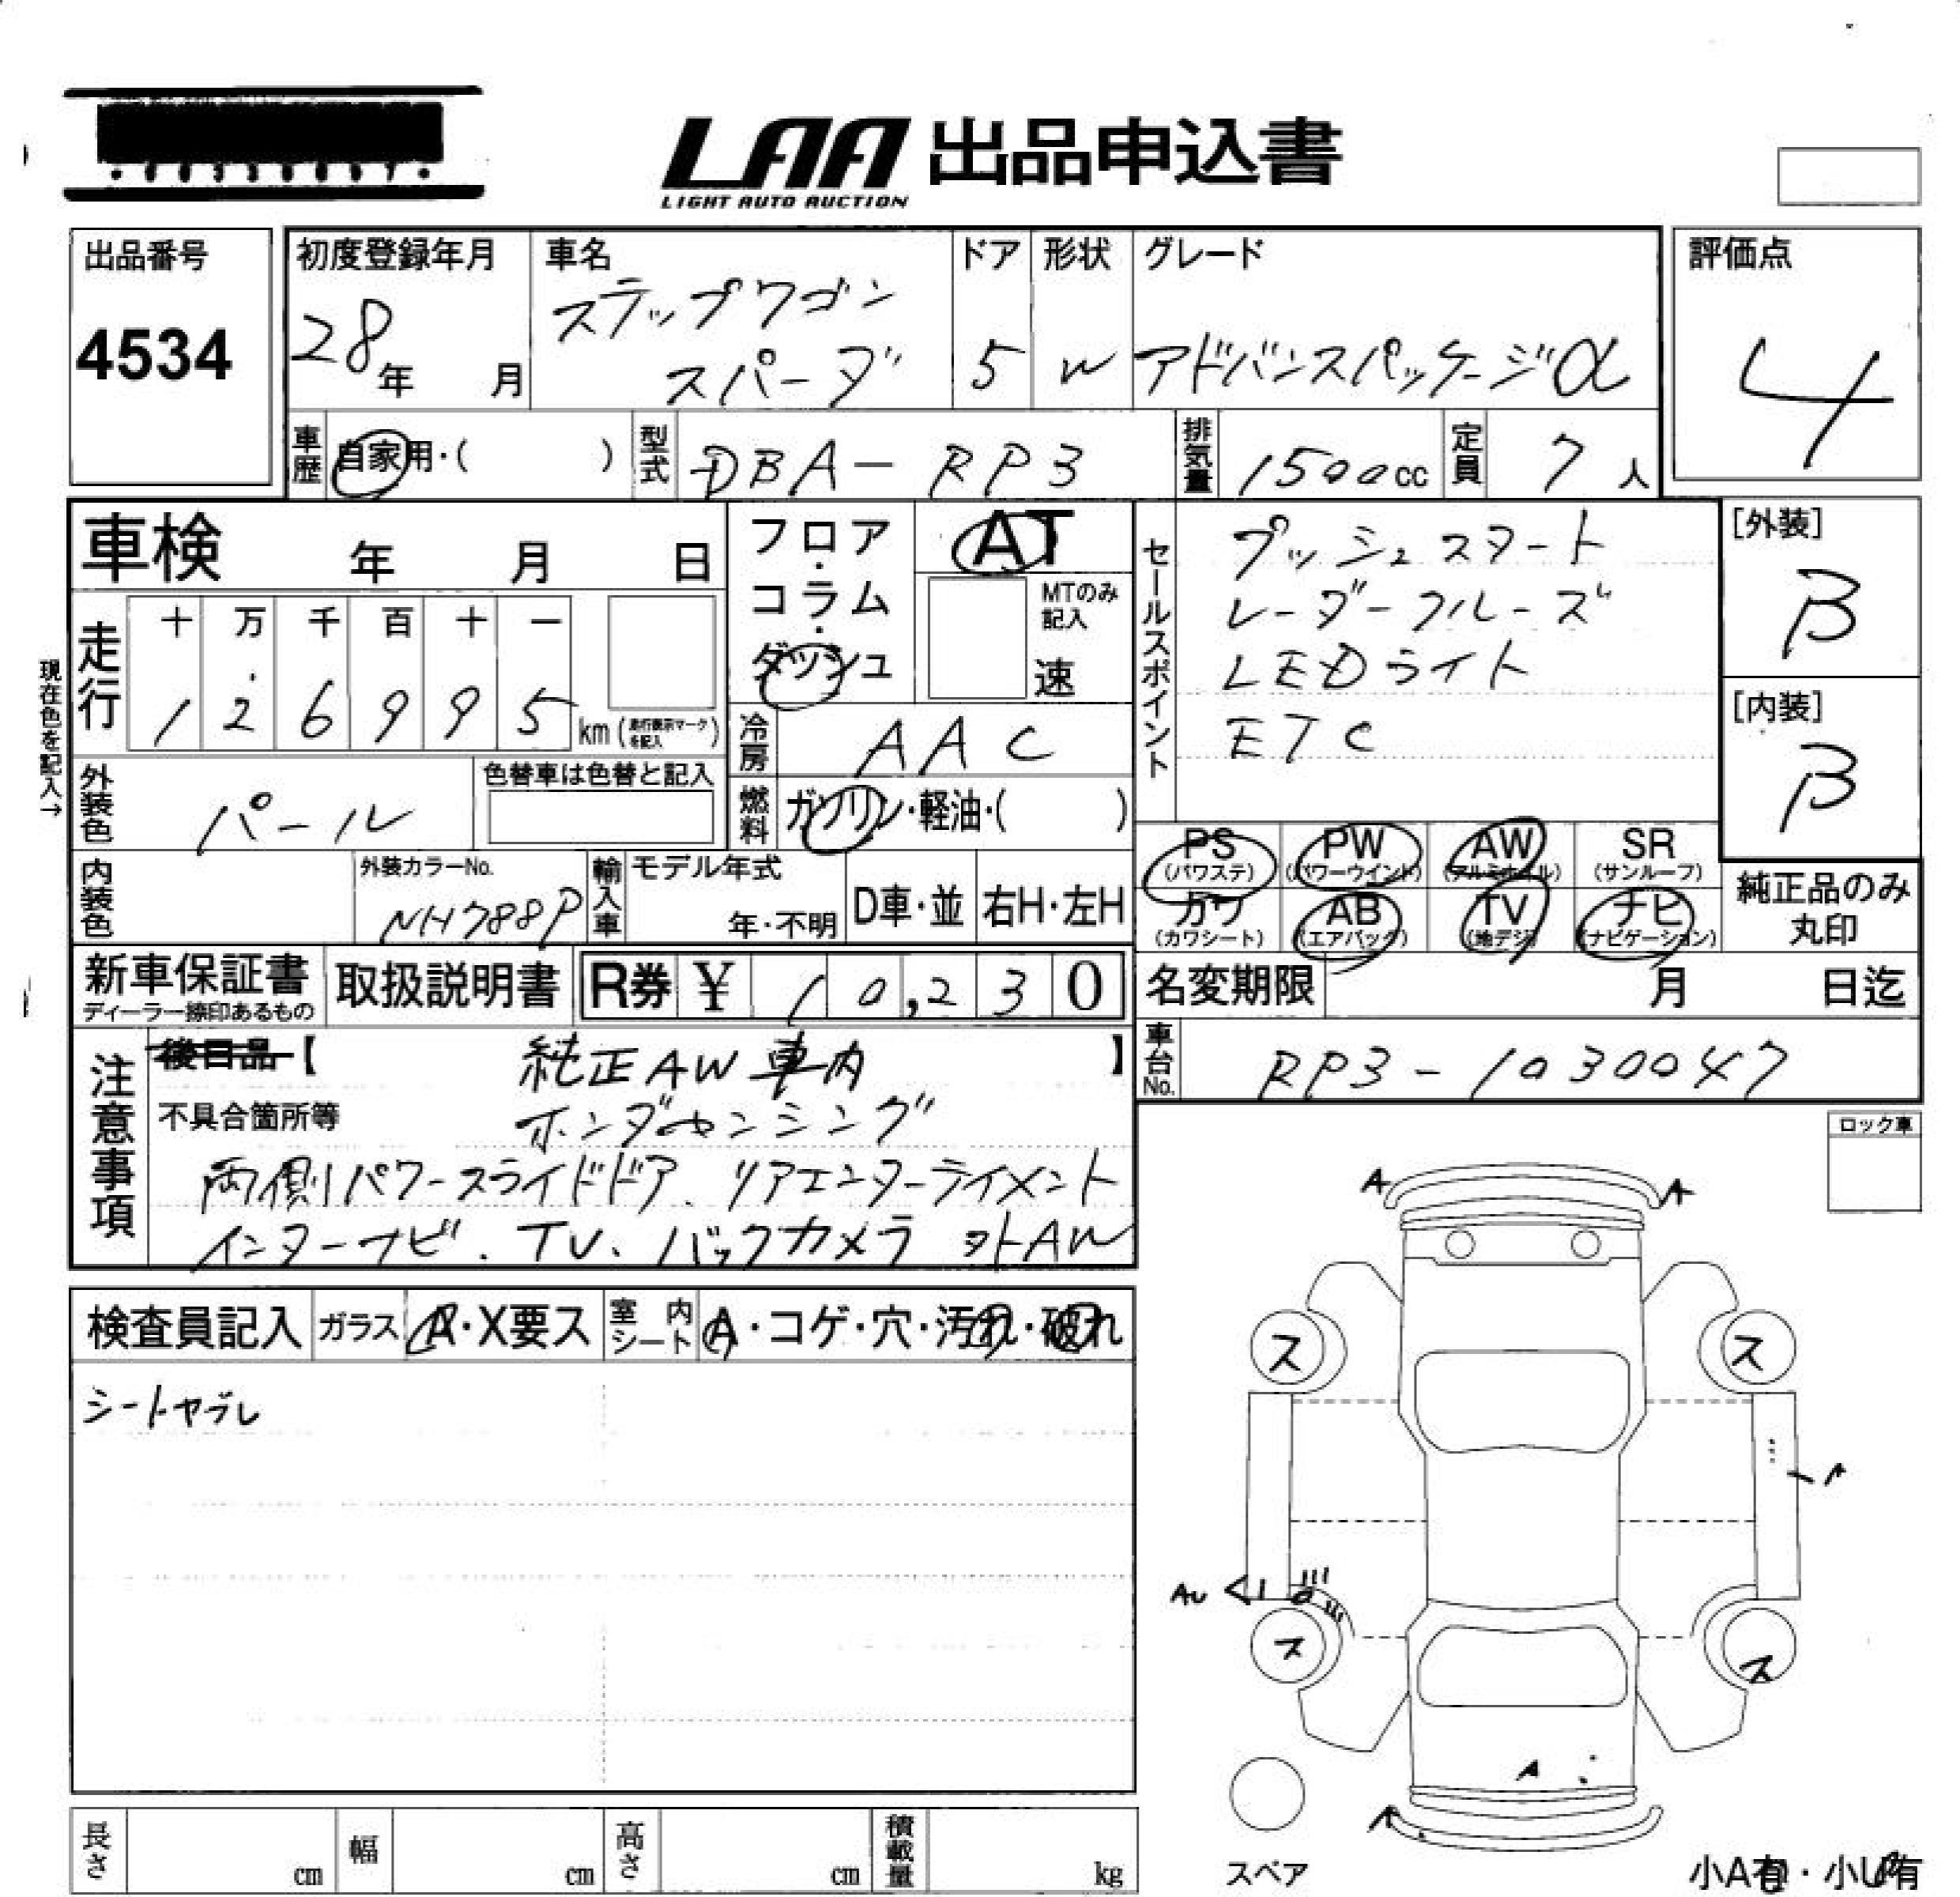 LAA 出品申込書
LIGHT AUTO AUCTION
出品番号
4534
初度登録年月
28年 月
車名
ステップワゴン
スパーダ
ドア
5
形状
W
グレード
アドバンスパッケージα
評価点
4
車歴 自家用・( )
型式 DBA-RP3
排気量 1500cc
定員 7人
車検 年 月 日
フロア・コラム・ダッシュ
AT
MTのみ記入
速
セールスポイント
プッシュスタート
レーダークルーズ
LEDライト
ETC
[外装]
B
[内装]
B
現在色を記入→
走行
十 万 千 百 十 一
1 2 6 9 9 5 km (走行表示マークを記入)
冷房 AAC
外装色 パール
色替車は色替と記入
燃料 ガソリン・軽油・( )
内装色
外装カラーNo.
NH788P
輸入車
モデル年式
年・不明
D車・並
右H・左H
PS (パワステ)
PW (パワーウインド)
AW (アルミホイル)
SR (サンルーフ)
カワ (カワシート)
AB (エアバック)
TV (地デジ)
ナビ (ナビゲーション)
純正品のみ
丸印
新車保証書
ディーラー捺印あるもの
取扱説明書
R券 ¥ 10,230
名変期限 月 日迄
車台No. RP3-1030047
注意事項
後日品【 純正AW車内 】
不具合箇所等 ホンダセンシング
両側パワースライドドア、リアエンターテイメント
インターナビ、TV、バックカメラ 外AW
ロック車
検査員記入
ガラス A・X要ス
室内シート A・コゲ・穴・汚れ・破れ
シートヤブレ
A A
ス ス
A
AU
ス ス
A
A
スペア
長さ cm
幅 cm
高さ cm
積載量 kg
小A有・小U有